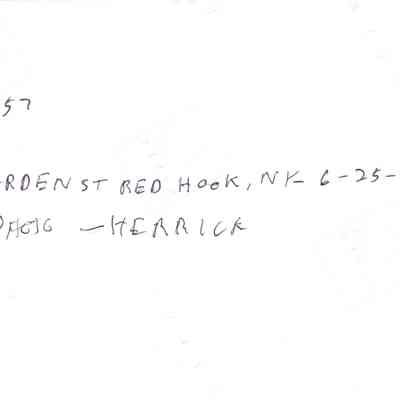 57
RDEN ST RED HOOK, NY- 6-25-
- HERRICK